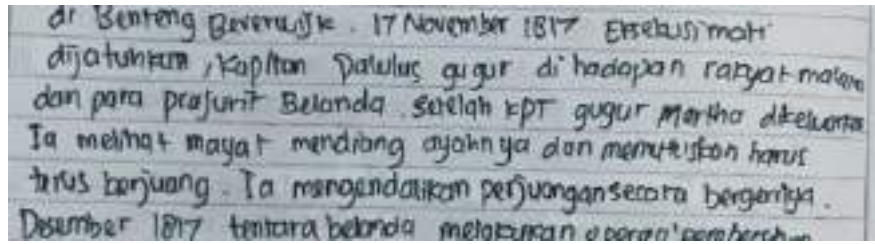 di Benteng Beverwijk. 17 November 1817 Eksekusi mati
dijatuhkan, Kapitan Paulus gugur di hadapan rakyat
dan para prajurit Belanda. setelah KPT gugur Martha
Ia melihat mayat mendiang ayahnya dan memutuskan harus
terus berjuang. Ia mengendalikan perjuangan secara bergerilya.
Desember 1817 tentara belanda melakukan operasi pembersihan